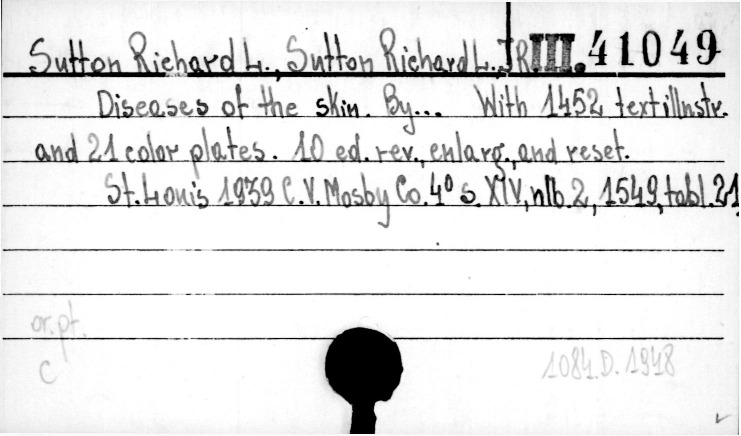 Sutton Richard L., Sutton Richard L. JR. III. 41049
Diseases of the skin. By... With 1452 textillustr.
and 21 color plates. 10 ed. rev., enlarg., and reset.
St. Louis 1939 C. V. Mosby Co. 4° s. XIV, nlb. 2, 1549, tabl. 21.
or. pt.
C
1084.D.1948